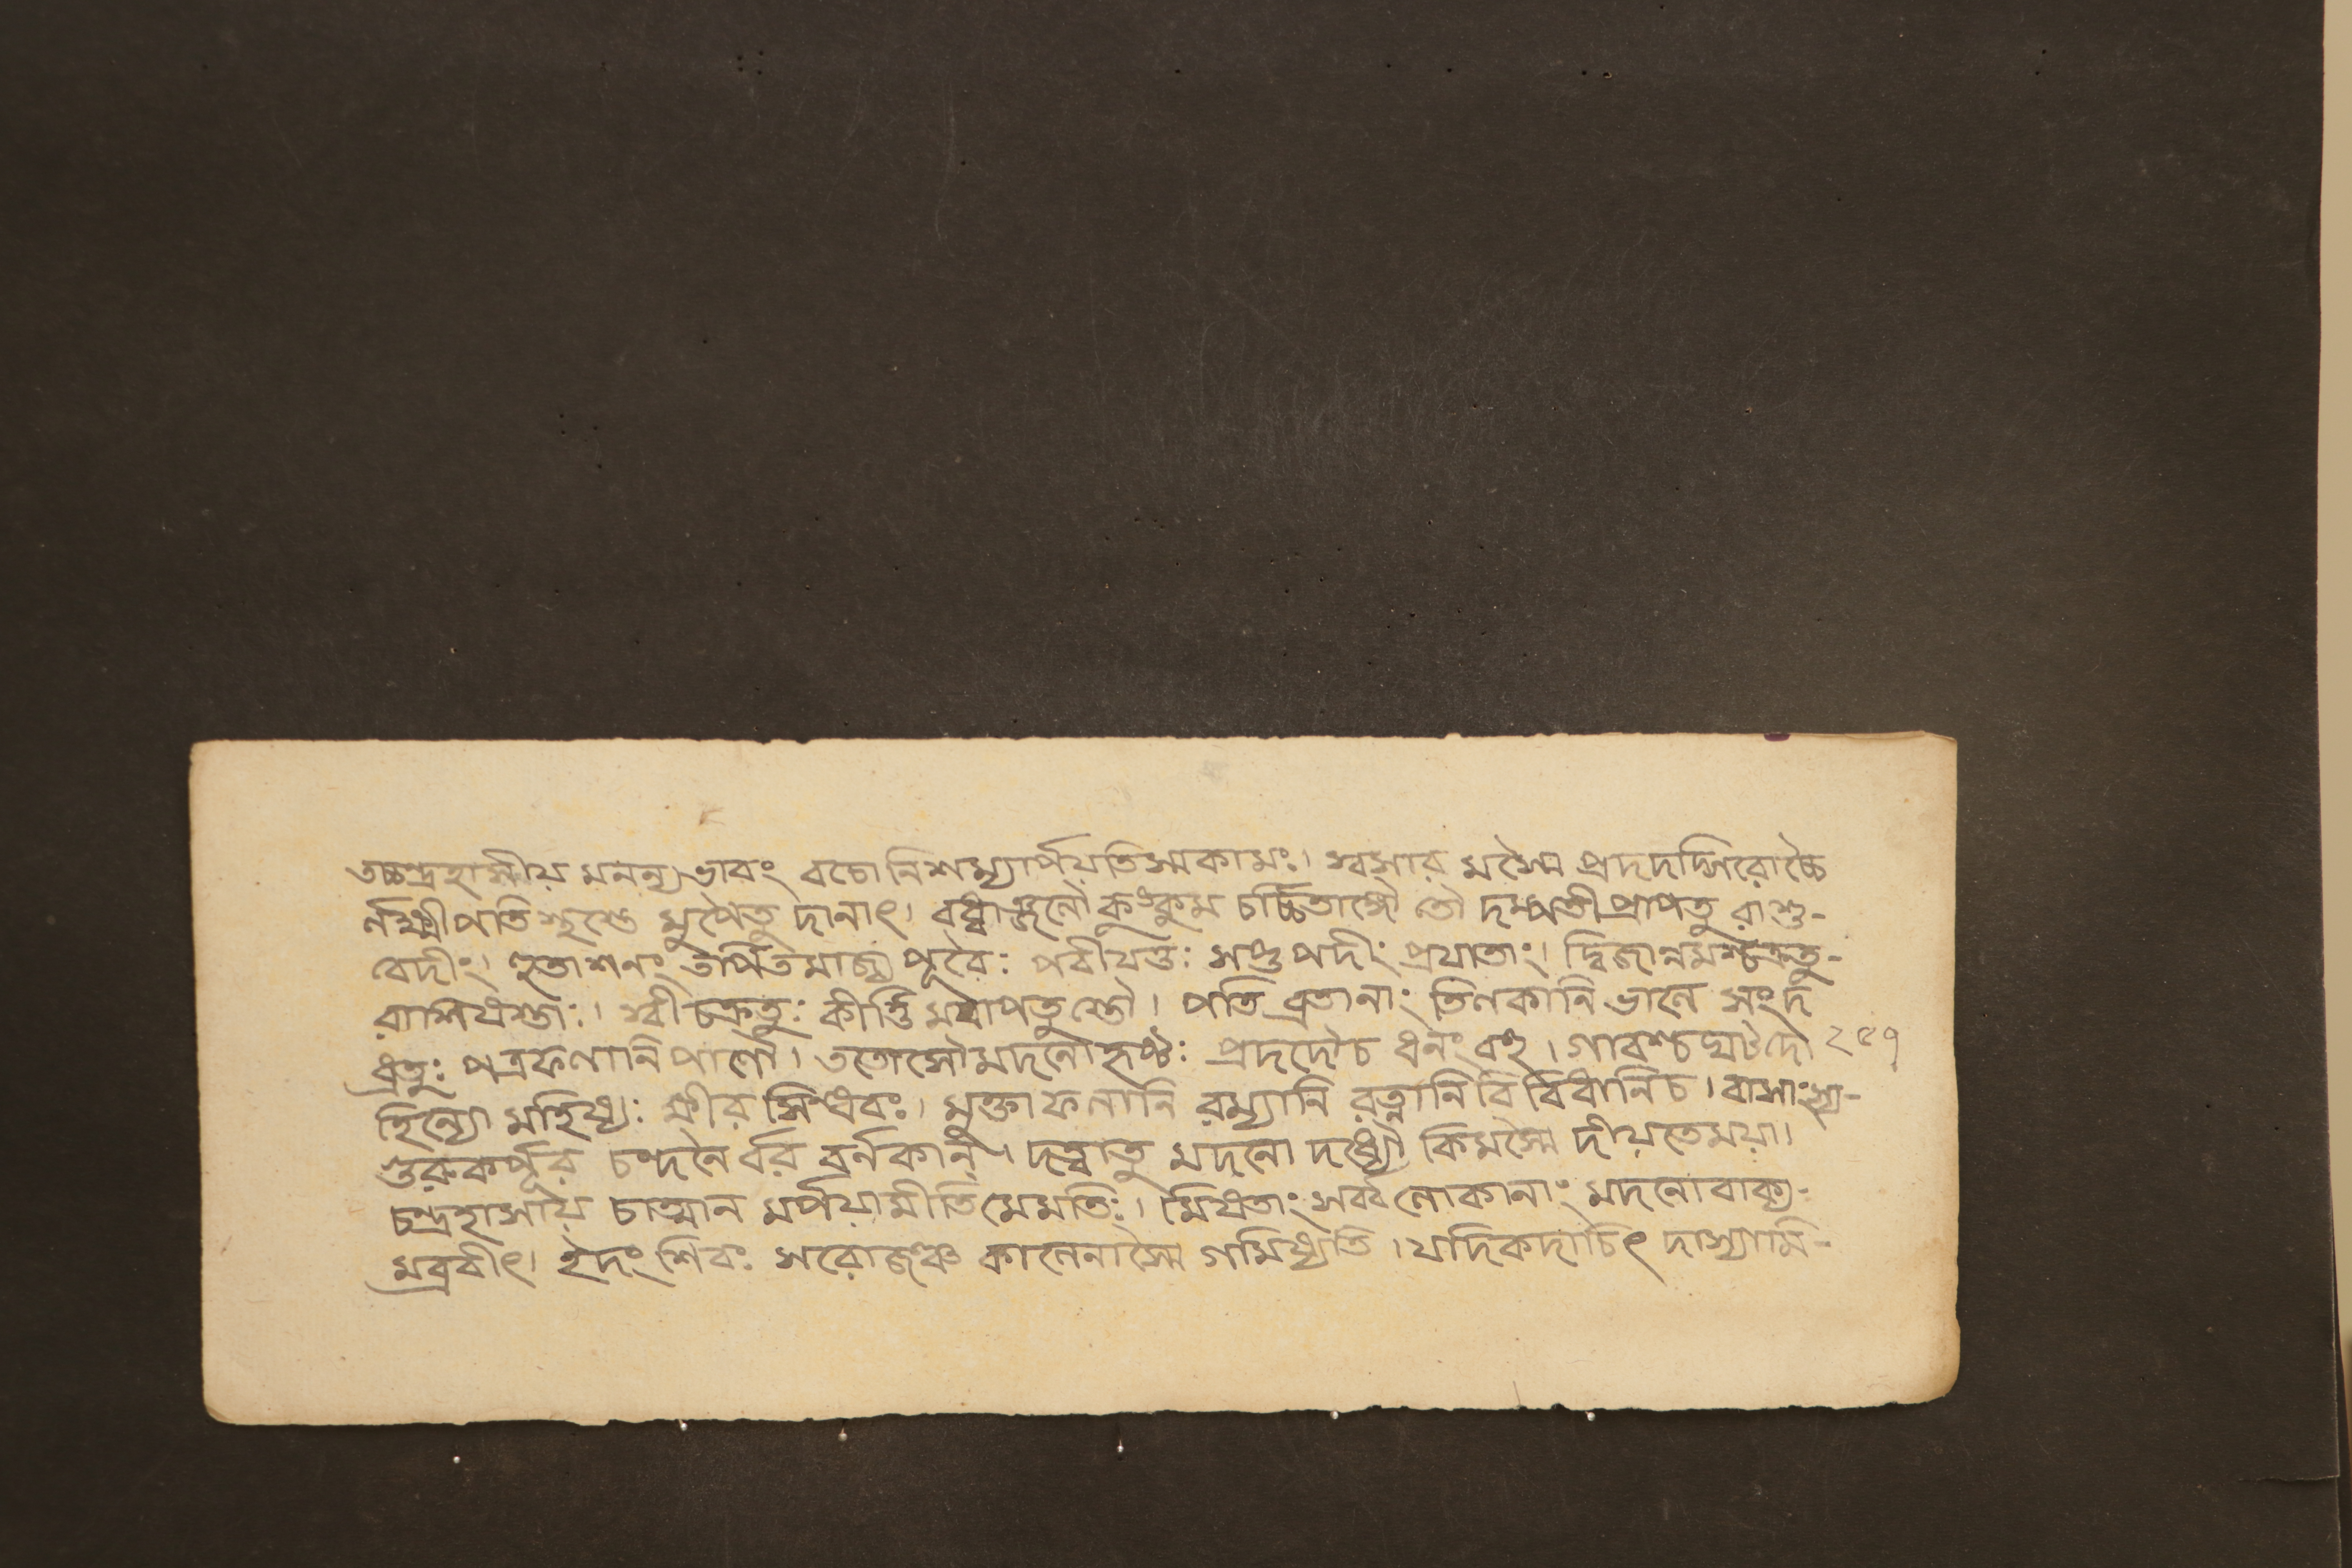 তচ্চন্দ্রহাসীয় মনন্যভাবং বচো নিশম্যার্পয়তিস্মকামঃ। স্বসার মস্মৈ প্রদদদ্গিরোচ্চৈ
র্লক্ষ্মীপতি স্তুষ্টে মুপৈতু দানাৎ। বধ্বাঞ্জলৌ কুংকুম চর্চ্চিতাঙ্গৌ তৌ দম্পতী প্রাপতু রাশু-
বেদীং। হুতাশনং তর্পিতমাজ্য পূরৈঃ পরীযতুঃ সপ্তপদীং প্রযাতাং। দ্বিজান্নমশ্চক্রতু-
রাশিষস্তাঃ। স্বীচক্রতুঃ কীর্ত্তি মবাপতুস্তৌ। পতিব্রতানাং তিলকানি ভালে সংদ
ধ্রতুঃ পত্রফলানি পাণৌ। ততোসৌমদনোহৃষ্টঃ প্রদদৌচ ধনং বহু। গাবশ্চঘটদো ২৫৭
হিন্যো মহিষ্যঃ ক্ষীর সিংধবঃ। মুক্তাফলানি রম্যানি রত্নানি বিবিধানিচ। বাসাংস্য-
গুরুকর্পূর চংদনৈর্বর বর্নকান্। দত্ত্বাতু মদনো দধ্যৌ কিমস্মৈ দীয়তেময়া।
চন্দ্রহাসায় চাত্মান মর্পয়ামীতি মেমতিঃ। মিষতাং সর্ব্বলোকানাং মদনোবাক্য-
মব্রবীৎ। ইদং শিরঃ সরোজঞ্চ কালেনাস্মৈ গমিষ্যতি। যদিকদাচিৎ দাস্যামি-